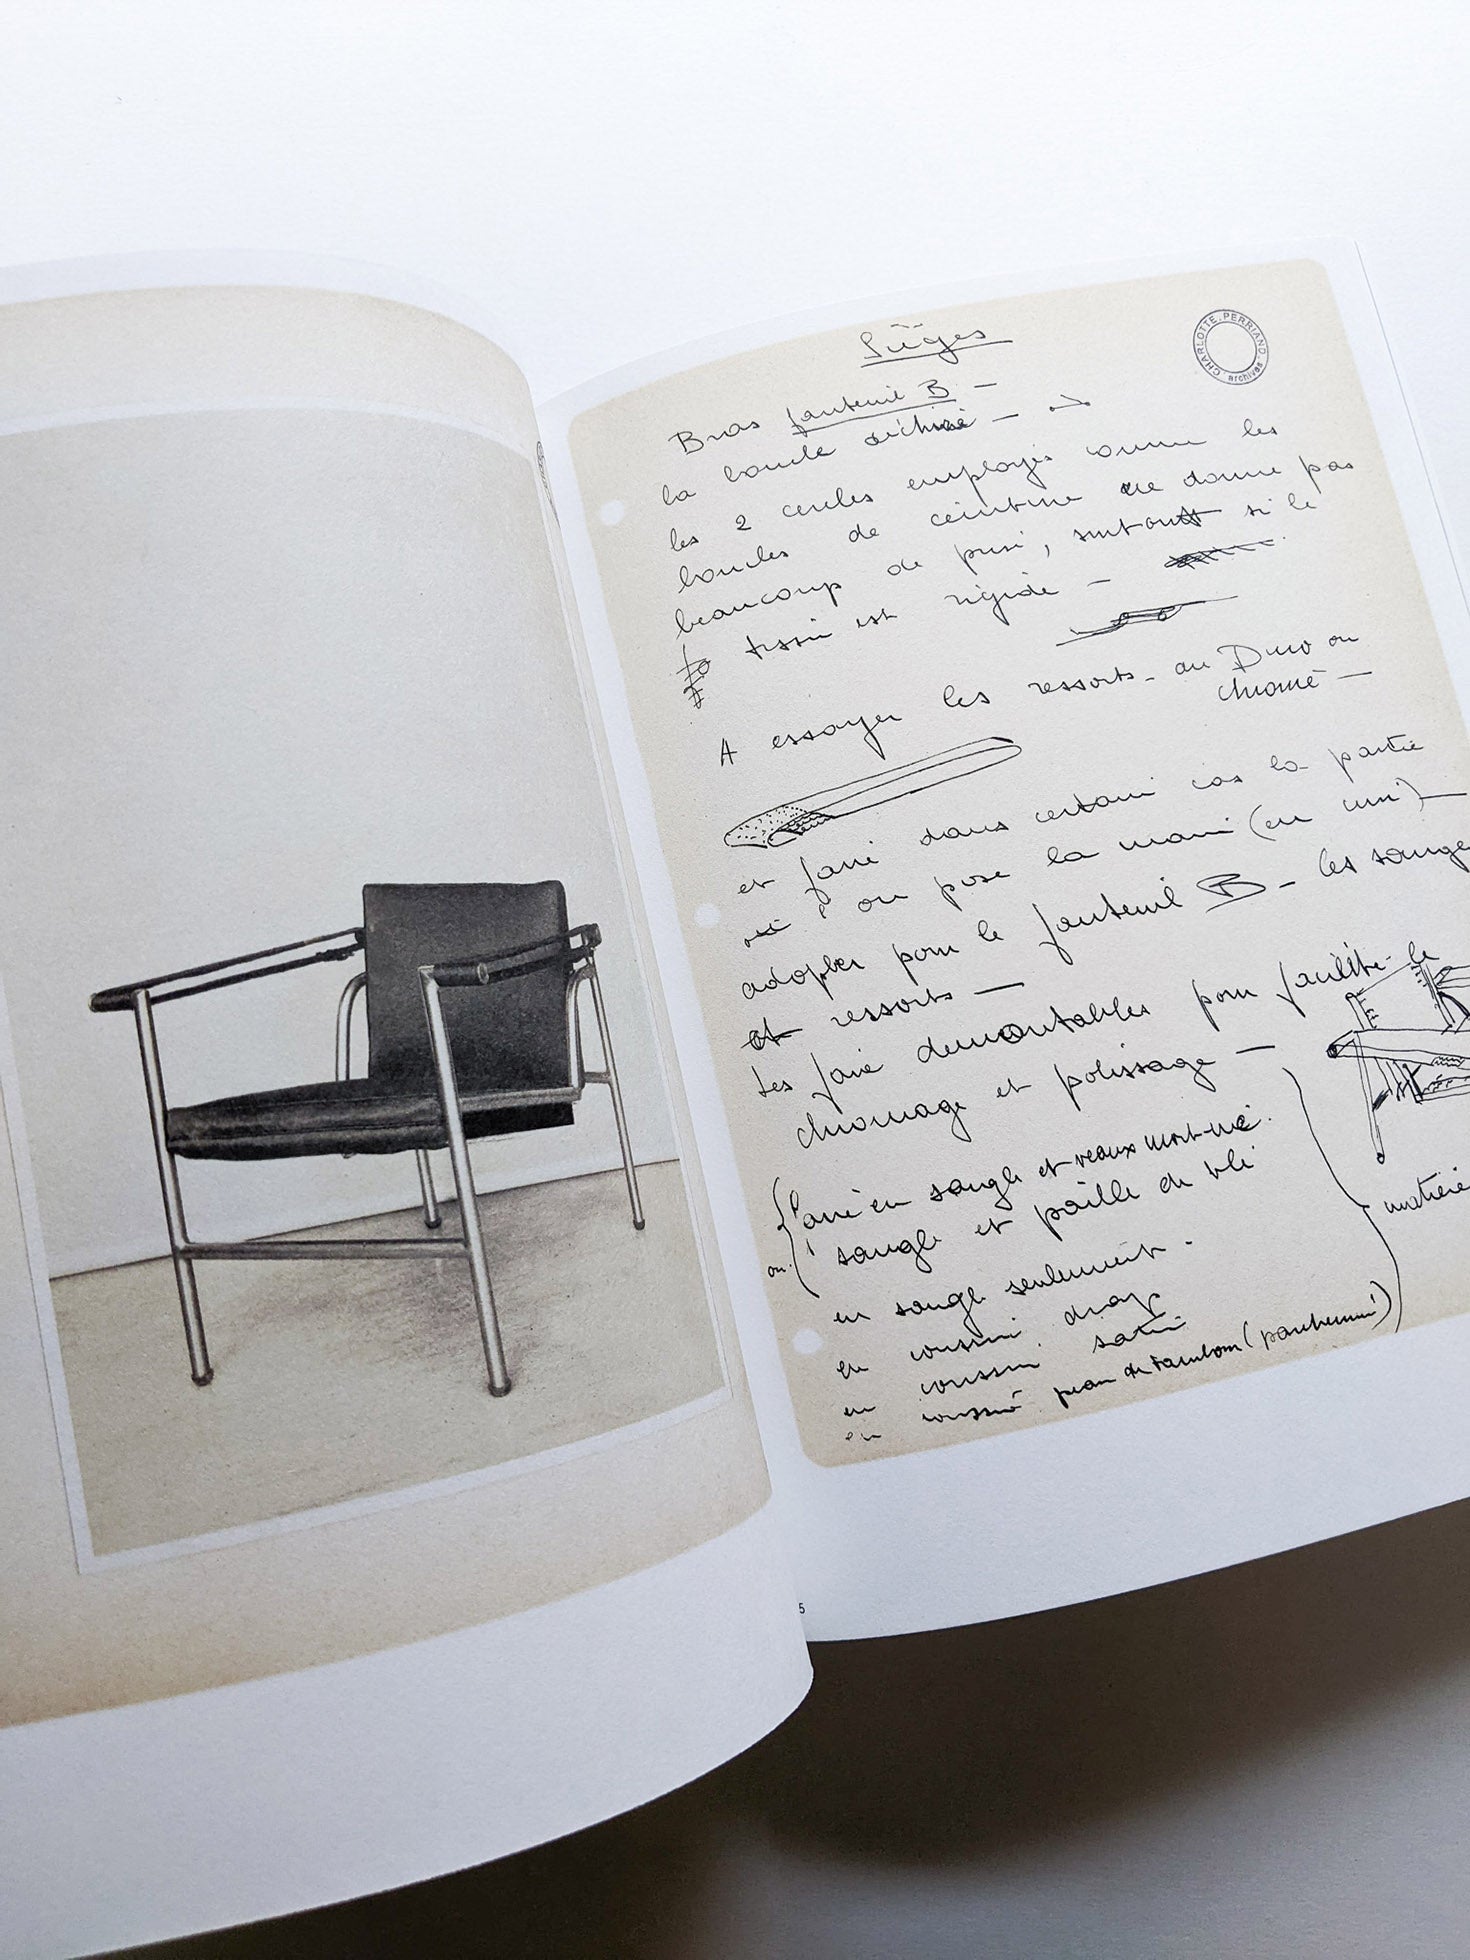 Sièges
CHARLOTTE.PERRIAND. archives
Bras fauteuil B —
la boucle —
les 2 cercles employés comme les
boucles de ceinture ne donne pas
beaucoup de prise, surtout si le
tissu est rigide —
A essayer les ressorts - au Duco ou
chromé —
et faire dans certain cas la partie
où l'on pose la main (en cuir) —
adopter pour le fauteuil B — les sangles
et ressorts —
les faire démontables pour facilité le
chromage et polissage —
faire en sangle et veaux mort-né.
ou sangle et paille de blé
en sangle seulement.
en coussin drap
en coussin satin
en coussin peau de tambour (parchemin)
matière
5